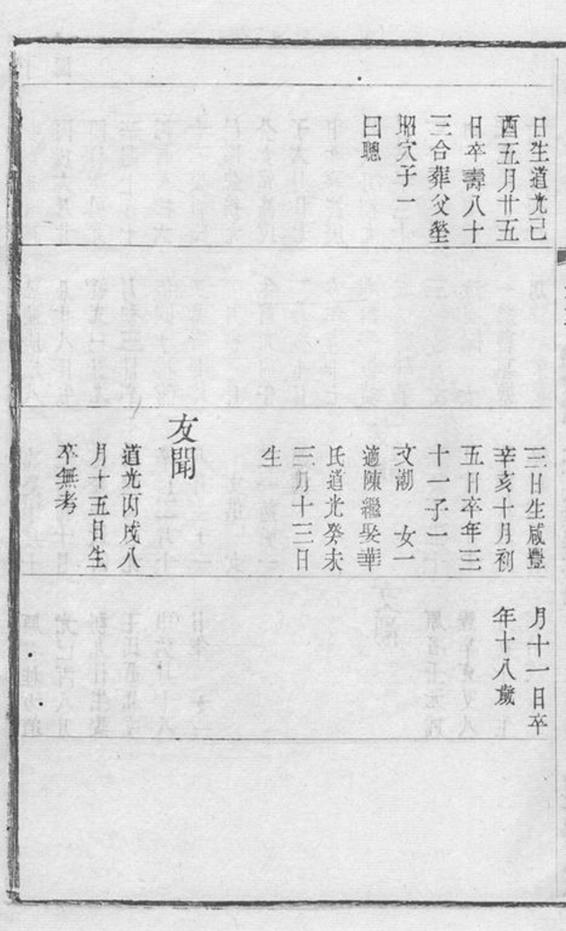 日生道光己
酉五月廿五
日卒壽八十
三合葬父塋
昭穴子一
曰聰
三日生咸豐
辛亥十月初
五日卒年三
十一子一
文潮　女一
適陳繼娶華
氏道光癸未
三月十三日
生
友聞
道光丙戌八
月十五日生
卒無考
月十一日卒
年十八歲